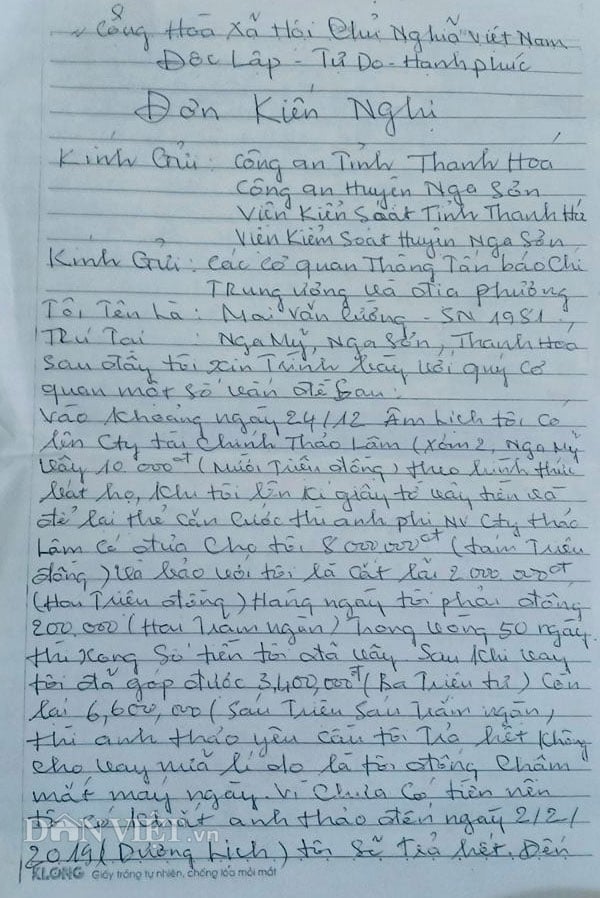 Cổng Hoà Xã Hội Chủ Nghĩa Việt Nam
Độc Lập - Tự Do - Hạnh phúc
Đơn Kiến Nghị
Kính Gửi : Công an Tỉnh Thanh Hoá
Công an Huyện Nga Sơn
Viện Kiểm Soát Tỉnh Thanh Hoá
Viện Kiểm Soát Huyện Nga Sơn
Kính Gửi : Các cơ quan Thông Tấn báo Chí
Trung ương và địa phương
Tôi Tên Là : Mai Văn Cường - SN 1981
Trú Tại : Nga Mỹ, Nga Sơn, Thanh Hoá
Sau đây tôi xin Trình bày với quý cơ
quan một số vấn đề sau :
Vào khoảng ngày 24/12 Âm Lịch tôi có
lên Cty tài Chính Thảo Lâm (Xóm 2, Nga Mỹ
vay 10.000đ (Mười Triệu đồng) theo hình thức
bát họ, Khi tôi lên kí giấy tờ vay tiền và
để lại thẻ căn cước thì anh phi NV Cty thảo
Lâm có đưa Cho tôi 8.000.000đ (tám Triệu
đồng) và bảo với tôi là cắt lãi 2.000.000đ
(Hai Triệu đồng) Hàng ngày tôi phải đóng
200.000 (Hai Trăm ngàn) Trong vòng 50 ngày.
thì xong Số tiền tôi đã vay Sau khi vay
tôi đã góp được 3,400,000đ (Ba Triệu tư) Còn
lại 6,600,000 (Sáu Triệu Sáu Trăm ngàn)
thì anh thảo yêu cầu tôi Trả hết không
cho vay nữa lí do là tôi đóng Chậm
mất mấy ngày. Vì Chưa Có tiền nên
tôi có khất anh thảo đến ngày 2/2/
2019 (Dương Lịch) tôi Sẽ Trả hết. Đến
DÂN VIỆT.vn
KLONG Giấy trắng tự nhiên, chống lóa mỏi mắt